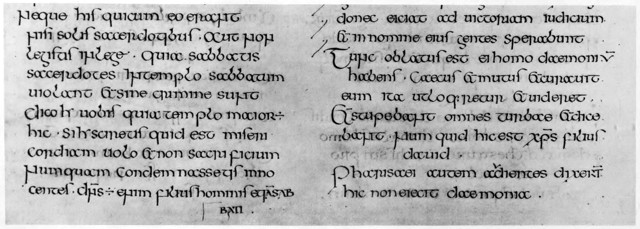 neque his qui cum eo erant
nisi solis sacerdotibus · Aut non
legistis in lege · Quia sabbatis
sacerdotes in templo sabbatum
uiolant & sine crimine sunt
Dico h uobis quia templo maior ÷
hic · Si h scietis quid est miseri
cordiam uolo & non sacrificium
Numquam condemnassetis inno
centes · dn̄s ÷ enim filius hominis
donec eiciat ad uictoriam iudicium
& in nomine eius gentes sperabunt
Tunc oblatus est ei homo daemoniū
habens · Caecus & mutus & curauit
eum ita ut loqueretur & uideret ·
& stupebant omnes turbae & dice
bant · Numquid hic est xp̄s filius
dauid
Pharisaei autem audientes dixer̄t
hic non eiecit daemonia ·